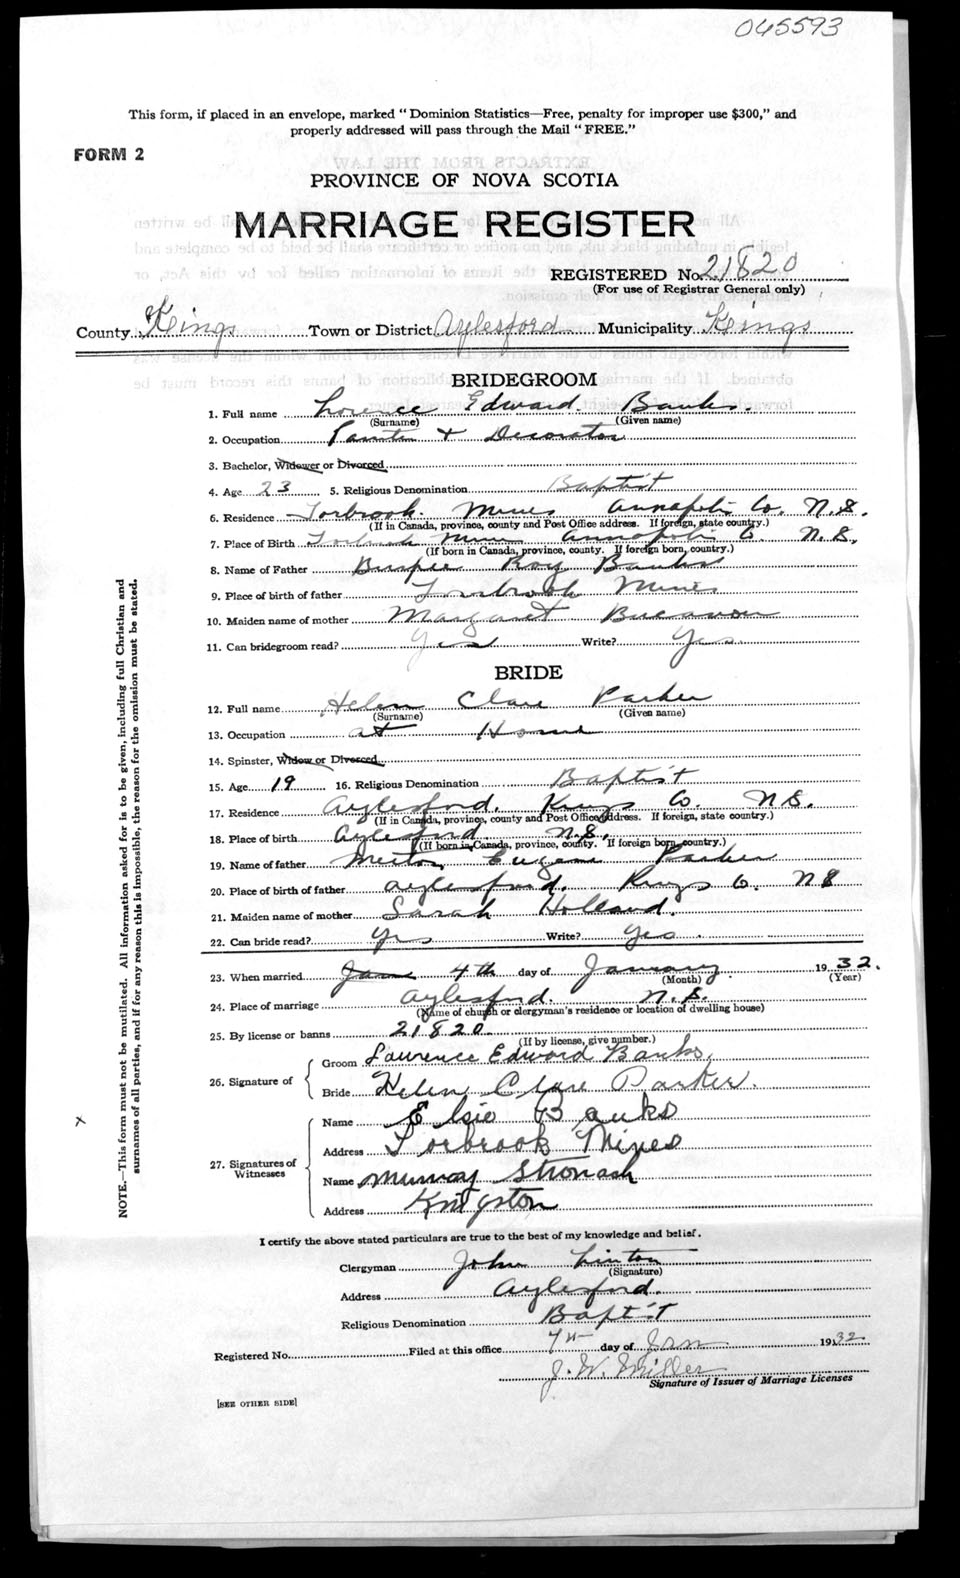 045593
This form, if placed in an envelope, marked "Dominion Statistics—Free, penalty for improper use $300," and
properly addressed will pass through the Mail "FREE."
FORM 2
PROVINCE OF NOVA SCOTIA
MARRIAGE REGISTER
REGISTERED No. 21820
(For use of Registrar General only)
County Kings Town or District Aylesford Municipality Kings
BRIDEGROOM
1. Full name Lorence Edward Banks.
(Surname) (Given name)
2. Occupation Painter + Decorator
3. Bachelor, Widower or Divorced
4. Age 23 5. Religious Denomination Baptist
6. Residence Torbrook Mines Annapolis Co. N.S.
(If in Canada, province, county and Post Office address. If foreign, state country.)
7. Place of Birth Torbrook Mines Annapolis Co N.S.
(If born in Canada, province, county. If foreign born, country.)
8. Name of Father Burpee Roy Banks
9. Place of birth of father Torbrook Mines
10. Maiden name of mother Margaret
11. Can bridegroom read? Yes Write? Yes
BRIDE
12. Full name Helen Clare Parker
(Surname) (Given name)
13. Occupation at Home
14. Spinster, Widow or Divorced
15. Age 19 16. Religious Denomination Baptist
17. Residence Aylesford. Kings Co. N.S.
(If in Canada, province, county and Post Office address. If foreign, state country.)
18. Place of birth Aylesford N.S.
(If born in Canada, province, county. If foreign born, country.)
19. Name of father Merton Eugene Parker
20. Place of birth of father Aylesford. Kings Co. N S
21. Maiden name of mother Sarah Holland.
22. Can bride read? Yes Write? Yes
23. When married 4th day of January 1932.
(Month) (Year)
24. Place of marriage Aylesford. N.S.
(Name of church or clergyman's residence or location of dwelling house)
25. By license or banns 21820
(If by license, give number.)
26. Signature of Groom Lawrence Edward Banks.
Bride Helen Clare Parker.
27. Signatures of Witnesses
Name Elsie Banks
Address Torbrook Mines
Name Murray Stronach
Address Kingston
I certify the above stated particulars are true to the best of my knowledge and belief.
Clergyman John Linton
(Signature)
Address Aylesford.
Religious Denomination Baptist
Registered No. Filed at this office 7th day of Jan 1932
J. W. Miller
Signature of Issuer of Marriage Licenses
[SEE OTHER SIDE]
NOTE.—This form must not be mutilated. All information asked for is to be given, including full Christian and
surnames of all parties, and if for any reason this is impossible, the reason for the omission must be stated.
x